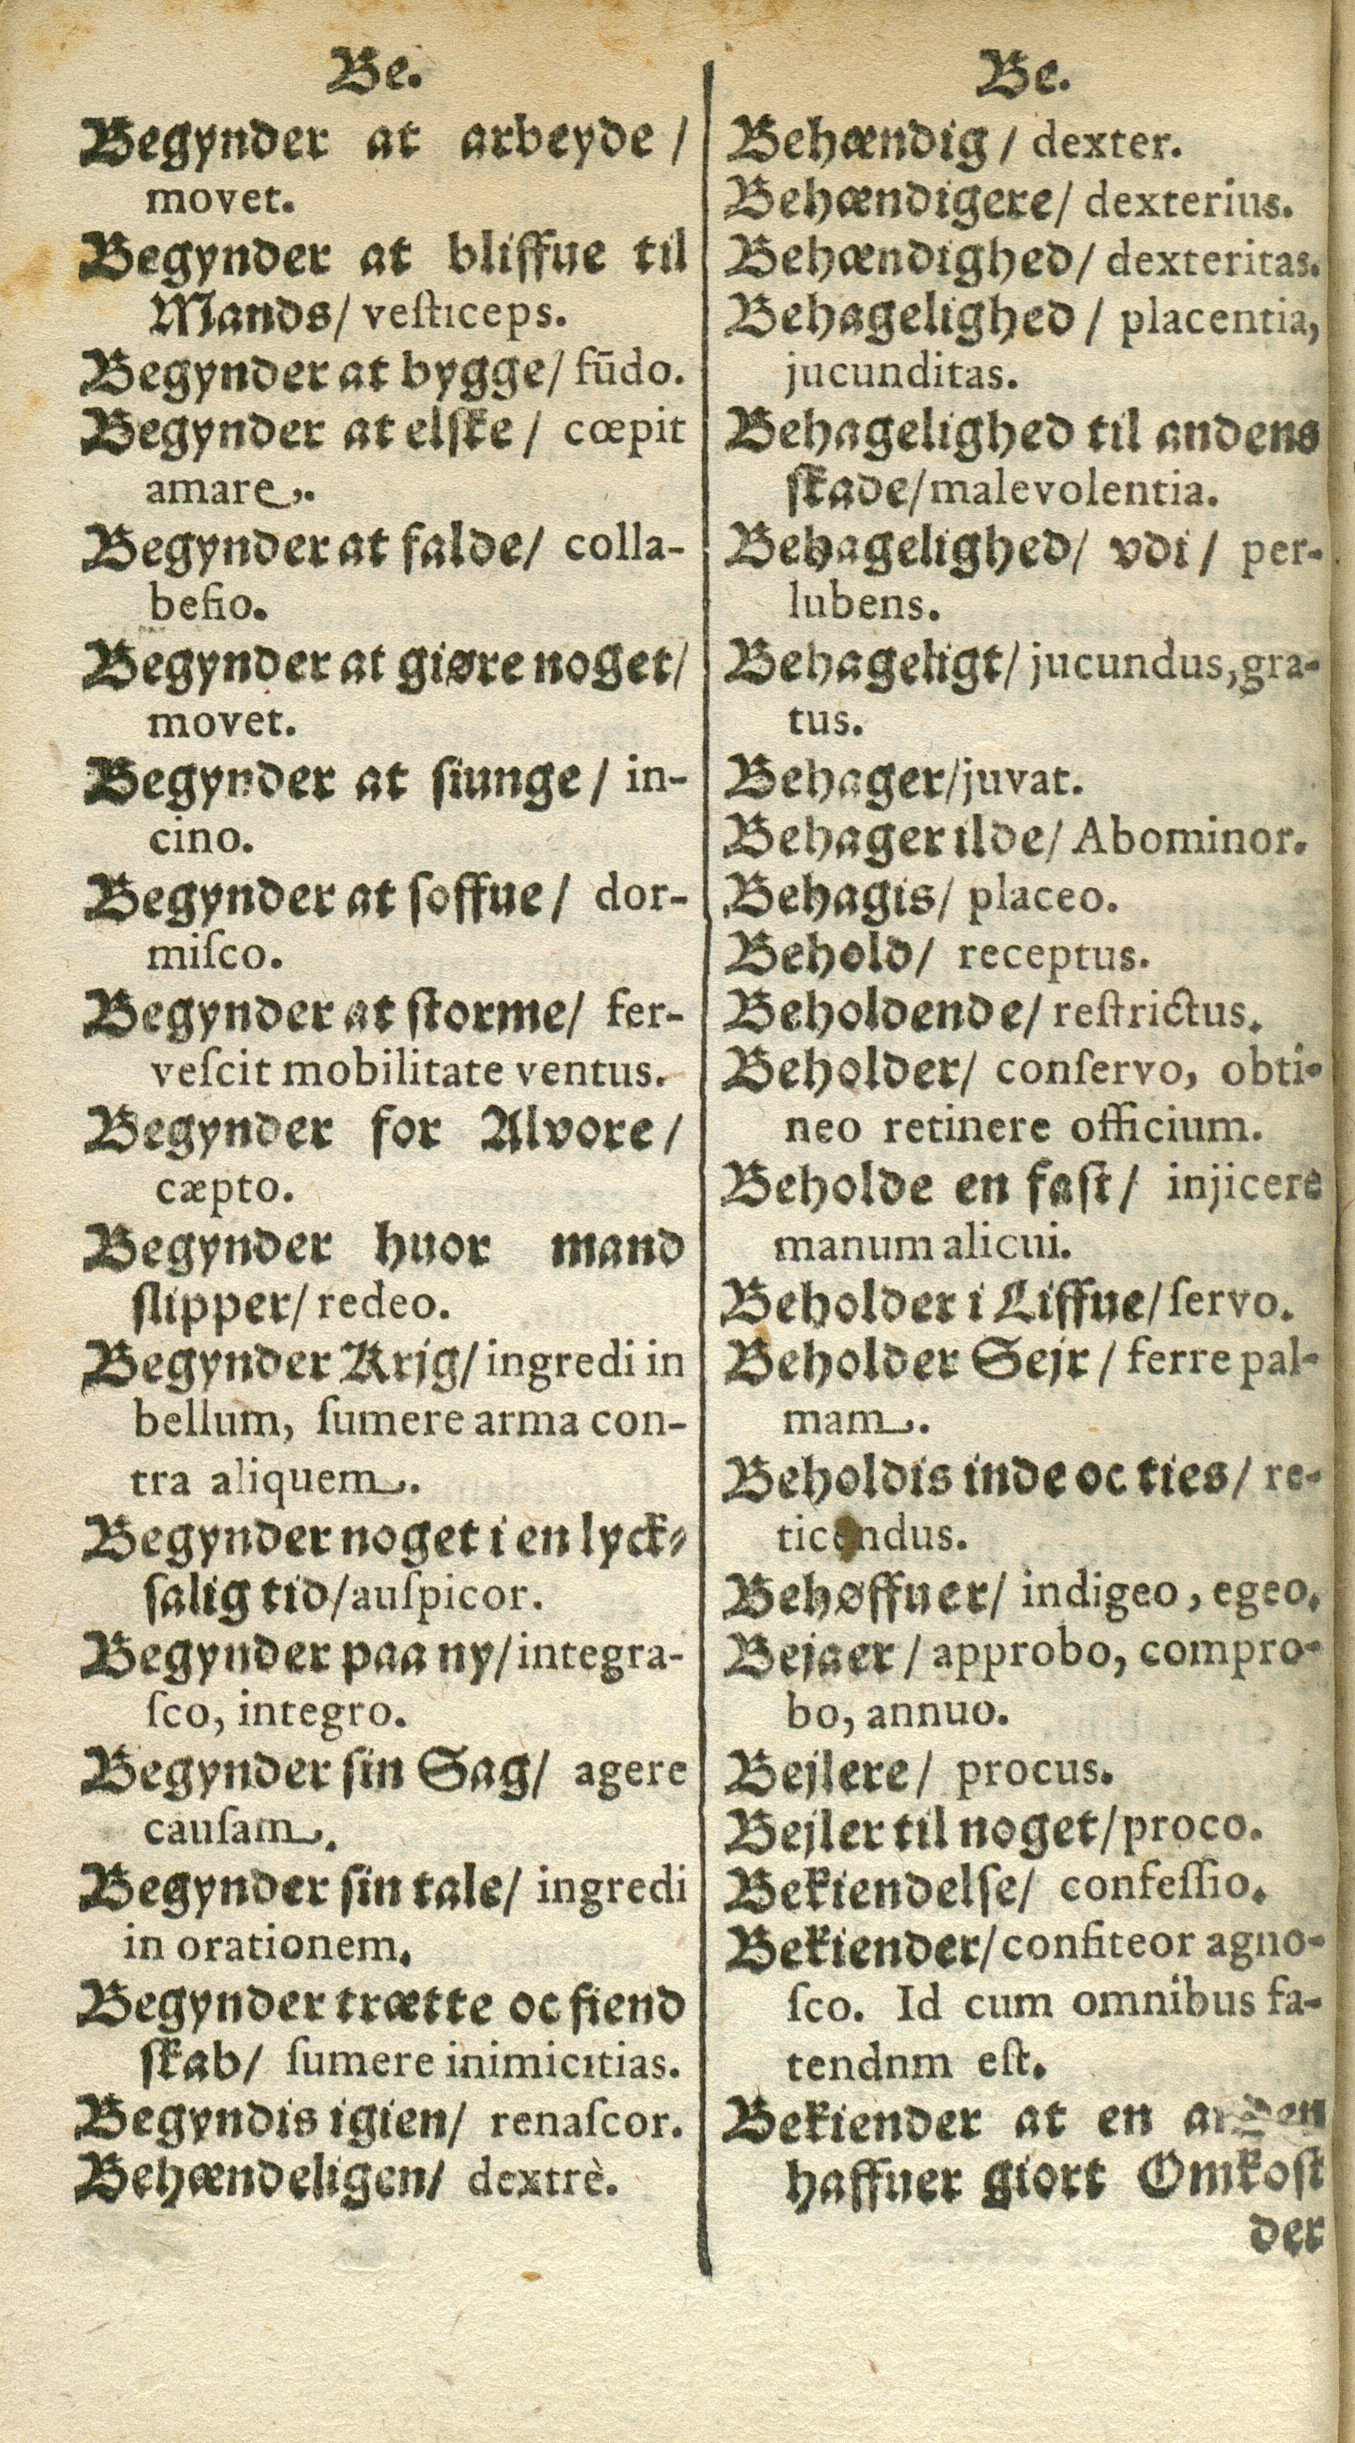 Be.
Begynder at arbeyde /
movet.
Begynder at bliffue til
Mands/ veſticeps.
Begynder at bygge/ fūdo.
Begynder at elſke / cœpit
amare.
Begynder at falde/ colla-
befio.
Begynder at giøre noget/
movet.
Begynder at ſiunge / in-
cino.
Begynder at ſoffue / dor-
miſco.
Begynder at ſtorme/ fer-
veſcit mobilitate ventus.
Begynder for Alvore /
cæpto.
Begynder huor mand
ſlipper/ redeo.
Begynder Krjg/ ingredi in
bellum, ſumere arma con-
tra aliquem.
Begynder noget i en lyck-
ſalig tid/auſpicor.
Begynder paa ny/integra-
ſco, integro.
Begynder ſin Sag/ agere
cauſam.
Begynder ſin tale/ ingredi
in orationem.
Begynder trætte oc fiend
ſkab/ ſumere inimicitias.
Begyndis igien/ renaſcor.
Behændeligen/ dextrè.
Be.
Behændig / dexter.
Behændigere/ dexterius.
Behændighed/ dexteritas.
Behagelighed / placentia,
jucunditas.
Behagelighed til andens
ſkade/malevolentia.
Behagelighed/ vdi / per-
lubens.
Behageligt/ jucundus,gra-
tus.
Behager/juvat.
Behager ilde/ Abominor.
Behagis/ placeo.
Behold/ receptus.
Beholdende/ reſtrictus.
Beholder/ conſervo, obti-
neo retinere officium.
Beholde en faſt/ injicere
manum alicui.
Beholder i Liffue/ſervo.
Beholder Sejr / ferre pal-
mam.
Beholdis inde oc ties/ re-
ticendus.
Behøffuer/ indigeo, egeo.
Bejaer / approbo, compro-
bo, annuo.
Bejlere/ procus.
Bejler til noget/proco.
Bekiendelſe/ confeſſio.
Bekiender/confiteor agno-
ſco. Id cum omnibus fa-
tendnm eſt.
Bekiender at en anden
haffuer giort Omkoſt
der